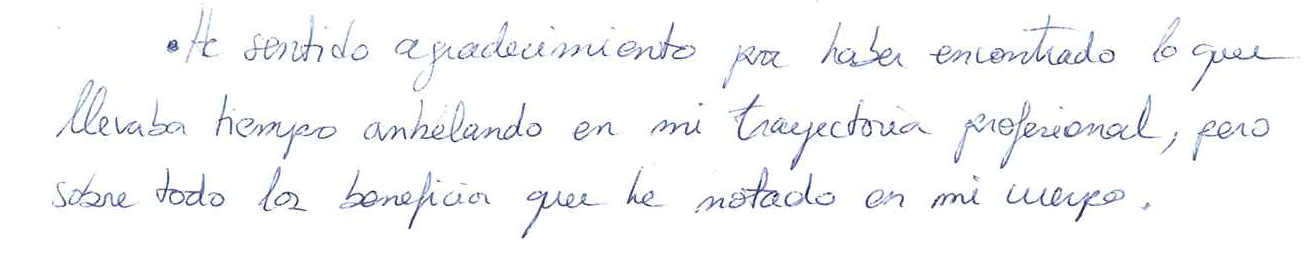 • He sentido agradecimiento por haber encontrado lo que
llevaba tiempo anhelando en mi trayectoria profesional, pero
sobre todo los beneficios que he notado en mi cuerpo.